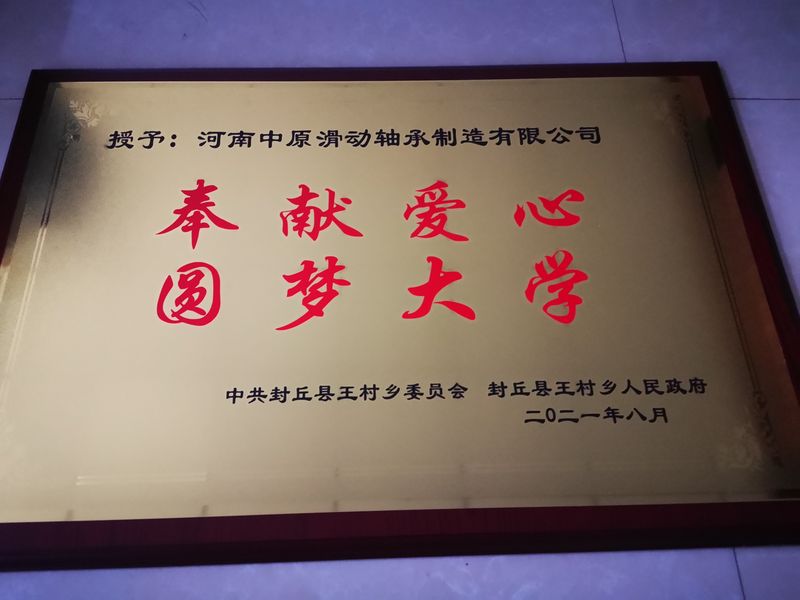 授予：河南中原滑动轴承制造有限公司
奉献爱心
圆梦大学
中共封丘县王村乡委员会 封丘县王村乡人民政府
二0二一年八月